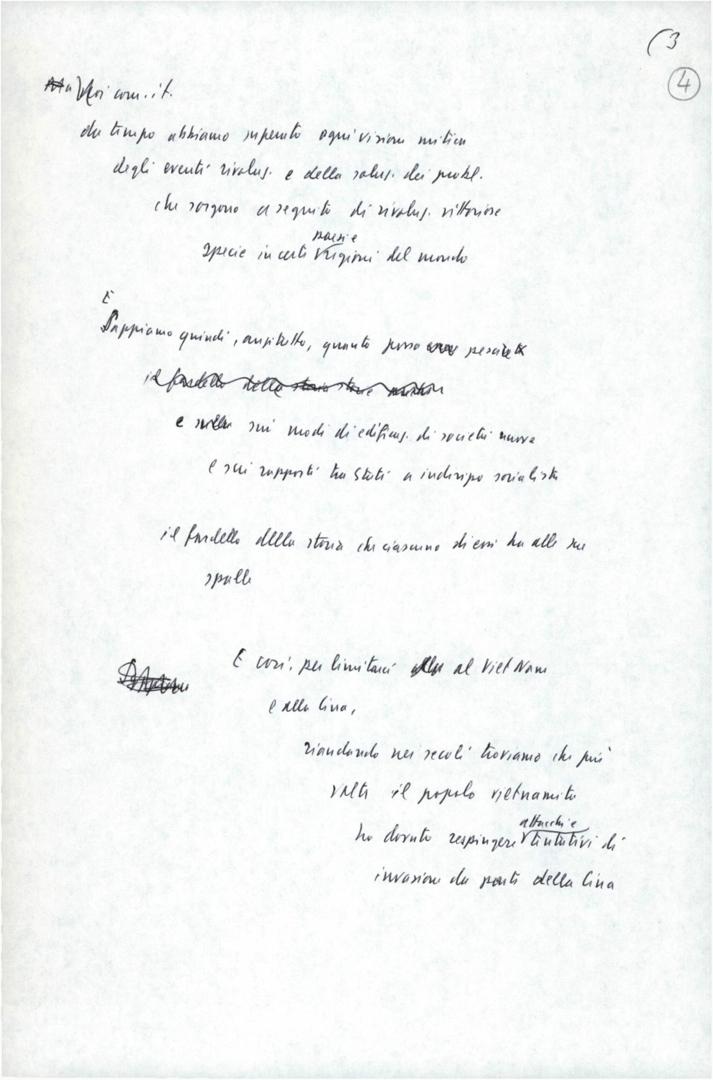 (3
4
Noi com. it.
da tempo abbiamo superato ogni visione mitica
degli eventi rivoluz. e della soluz. dei probl.
che sorgono a seguito di rivoluz. vittoriose
paesi e
specie in certi regioni del mondo
E
Sappiamo quindi, anzitutto, quanto possa pesare
il fardello della
e sui modi di edificaz. di società nuova
e sui rapporti tra Stati a indirizzo socialista
il fardello della storia che ciascuno di essi ha alle sue
spalle
E così, per limitarci al Viet Nam
e alla Cina,
riandando nei secoli troviamo che più
volte il popolo vietnamita
attacchi e
ha dovuto respingere tentativi di
invasione da parte della Cina